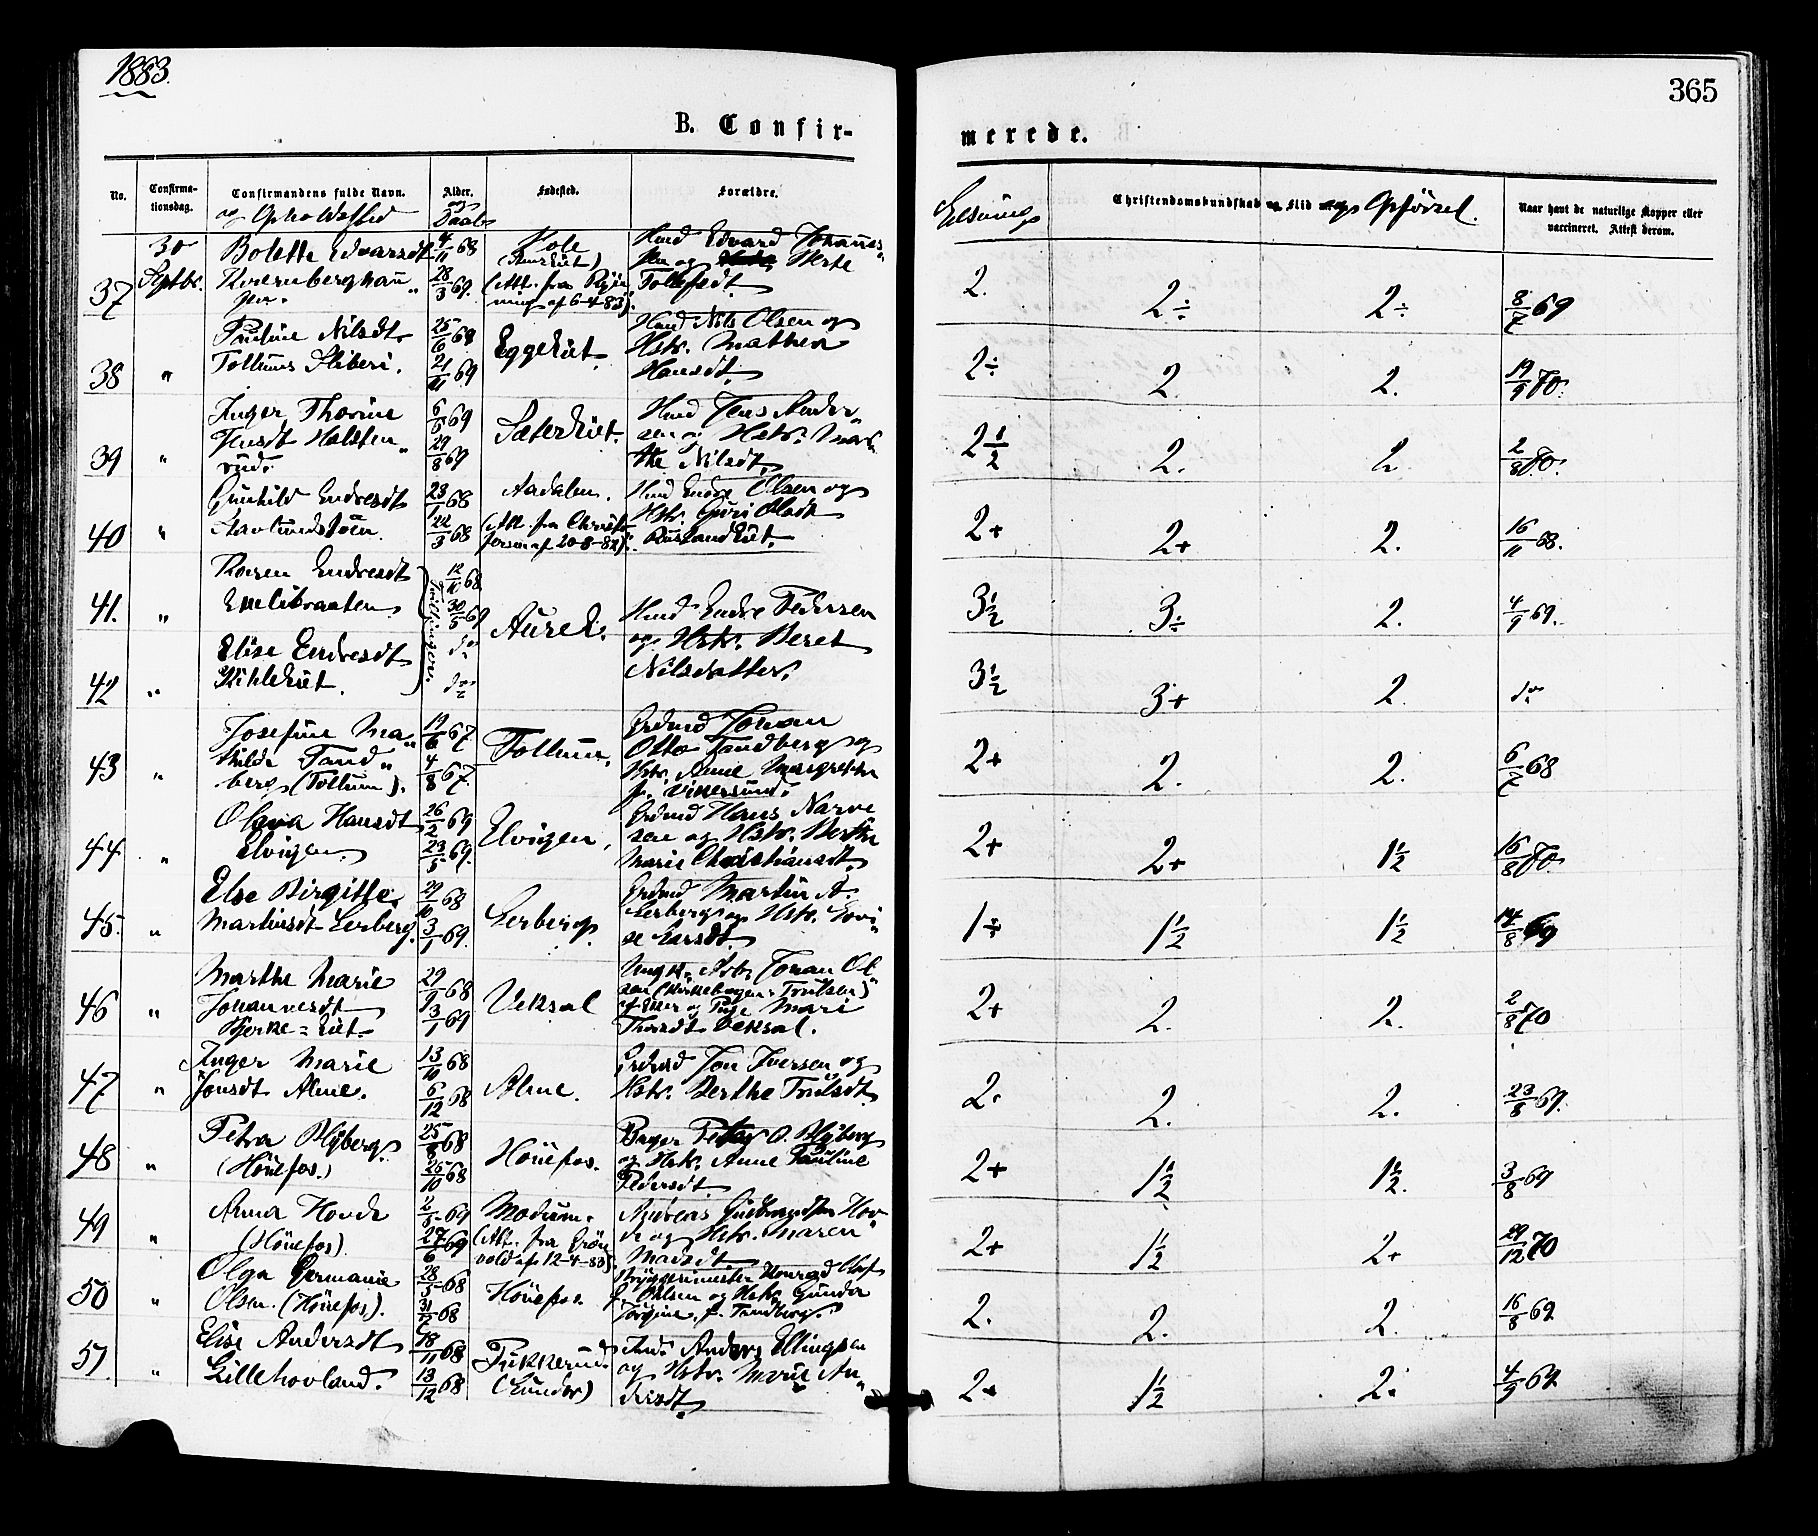 1883.
365
B. Confir-
merede.
No.
Confirma-
tionsdag.
Confirmandens fulde Navn.
og Opholdssted
Alder.
og
Daab
Fødested.
Forældre.
Læsning
Christendomskundskab og Flid
og Opførsel.
Naar havt de naturlige Kopper eller
vaccineret. Attest derom.
37
30
Septbr.
Bolette Edvardsdt
4/11 68
28/3 69.
Hole
(Att. fra
af 6-4-83)
Husmd Edvard Johannes
sen og Marte
Tollefsdt.
2.
2÷
2÷
8/7 69
38
"
Pauline Nilsdt.
25/6 69
21/11 69
Eggeeiet.
Husmd Nils Olsen og
Hstr. Mathea
Hansdt.
2÷
2.
2.
19/9 70.
39
"
Inger Thorine
Jensdt Halsten
rud.
6/5 69
29/8 69
Sætereiet.
Husmd Jens Ander
sen og Hstr. Mar
the Nilsdt.
2 1/2
2.
2
2/8 70.
40
"
Gunhild Endresdt
23/1 68
22/3 68
Aadalen.
(Att. fra Christi
af 20-8-82).
Husmd Endre Olsen og
Hstr. Guri Olsdt
2+
2+
2.
16/11 68.
41.
"
Karen Endresdt
12/10 68
30/5 69
Tvillinger.
Aurek.
Husmd Endre Pedersen
og Hstr. Beret
Nilsdatter.
3 1/2
3÷
2.
4/9 69.
42
"
Elise Endresdt
do
do
3 1/2
3+
2.
do
43
"
Josefine Ma
thilde Tand
berg (Tollum).
19/6 67
4/8 67.
Tollum.
Grdmd Johan
Otto Tandberg og
Hstr. Anne Margrethe
f. Vikersund.
2+
2.
2.
6/7 68
44.
"
Olava Hansdt
Elvigen.
26/2 69
23/5 69.
Elvigen.
Grdmd Hans Narve
sen og Hstr. Berthe
Marie Christiansdt.
2+
2+
1 1/2
16/8 70.
45.
"
Else Birgitte
Martinsdt Lerberg.
29/10 68
3/1 69.
Lerberg.
Grdmd Martin A.
Lerberg og Hstr. Lovi
se Larsdt.
1÷
1 1/2
1 1/2
14/8 69
46
"
Marthe Marie
Johannesdt
Bjerke=eiet.
29/9 68
3/1 69
Veksal
Ungk. Arb. Johan Ol
sen (Kirkebogen: Trulsen)
og Pige Mari
Thorsdt Veksal.
2+
2.
2.
2/8 70
47
"
Inger Marie
Jonsdt Alme.
13/10 68
6/12 68
Alme.
Grdmd Jon Iversen og
Hstr. Berthe Trulsdt.
2.
2.
2.
23/8 69.
48
"
Petra Blyberg.
(Hønefos.)
25/8 68
25/10 68
Hønefos.
Bager Peter O. Blyberg
og Hstr. Anne Pauline
Pedersdt.
2+
1 1/2
1 1/2.
3/8 69
49
"
Anna Hovde
(Hønefos).
2/5 69
27/6 69
Modum.
(Att. fra Grøn
vold af 12-4-83).
Andreas Gudbrandsen Hov
de og Hstr. Maren
Madsdt.
2+
1 1/2
2+
29/12 70
50
"
Olga Germanie
Olsen. (Hønefos).
28/5 68
31/ 68
Hønefos.
Bryggerimester Olaf
J. Ohlsen og Hstr. Gunda
Jørgine f. Tandberg.
2.
2.
2.
16/8 69
51.
"
Elise Andersdt
Lillehovland.
18/11 68
13/12 68
Fikkerud.
(Lunder)
Inds. Anders Ellingsen
og Hstr. Marie An
dersdt.
2+
1 1/2
2.
4/9 69